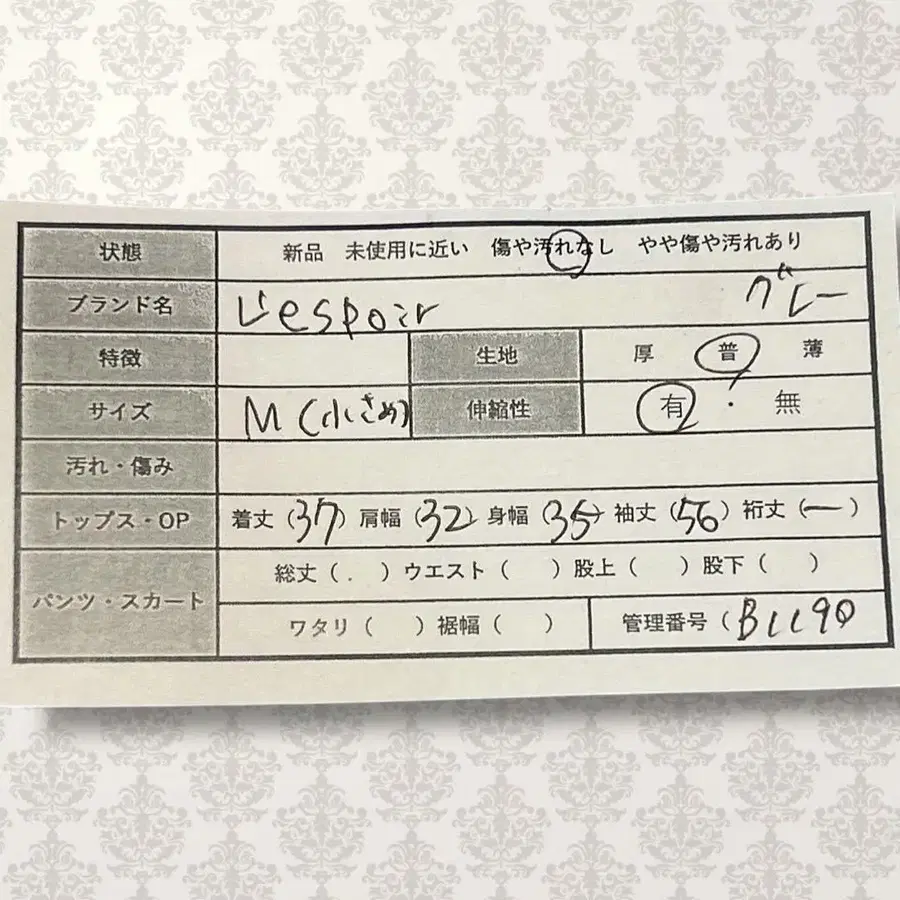 状態 新品 未使用に近い 傷や汚れなし やや傷や汚れあり
ブランド名 L'espoir グレー
特徴 生地 厚 普 薄
サイズ M (小さめ) 伸縮性 有・無
汚れ・傷み
トップス・OP 着丈(37) 肩幅(32) 身幅(35) 袖丈(56) 裄丈(ー)
パンツ・スカート 総丈( ) ウエスト( ) 股上( ) 股下( )
ワタリ( ) 裾幅( ) 管理番号(B1190